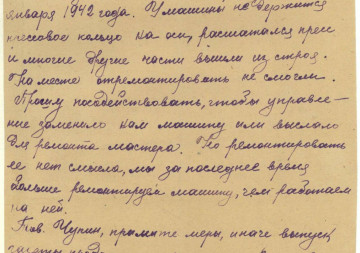 января 1942 года. У машины не держится
прессовое кольцо на оси, расшатался пресс
и многие другие части вышли из строя.
На месте отремонтировать не смогли.
Просим посодействовать, чтобы управле-
ние заменило нам машину или выслало
для ремонта мастера. Но ремонтировать
ее нет смысла, мы за последнее время
больше ремонтируем машину, чем работаем
на ней.
Тов. Чупин, примите меры, иначе выпуск
газеты